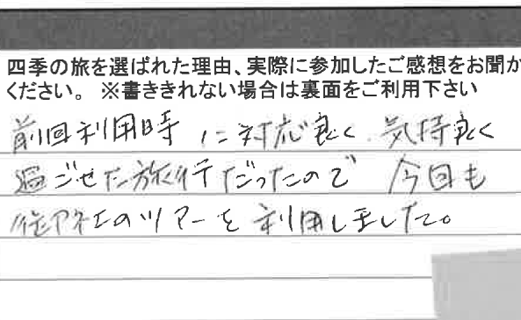 四季の旅を選ばれた理由、実際に参加したご感想をお聞か
ください。 ※書ききれない場合は裏面をご利用下さい
前回利用時に対応良く、気持良く
過ごせた旅行だったので 今回も
のツアーを利用しました。